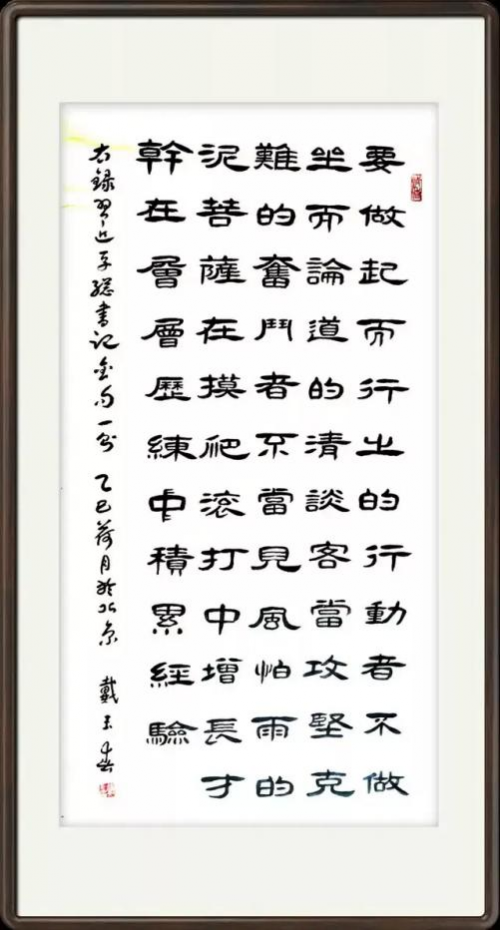 要做起而行之的行動者不做
坐而論道的清談客當攻堅克
難的奮鬥者不當見風怕雨的
泥菩薩在摸爬滾打中增長才
幹在層層歷練中積累經驗
右錄習近平總書記金句一則 乙巳荷月於北京 戴玉